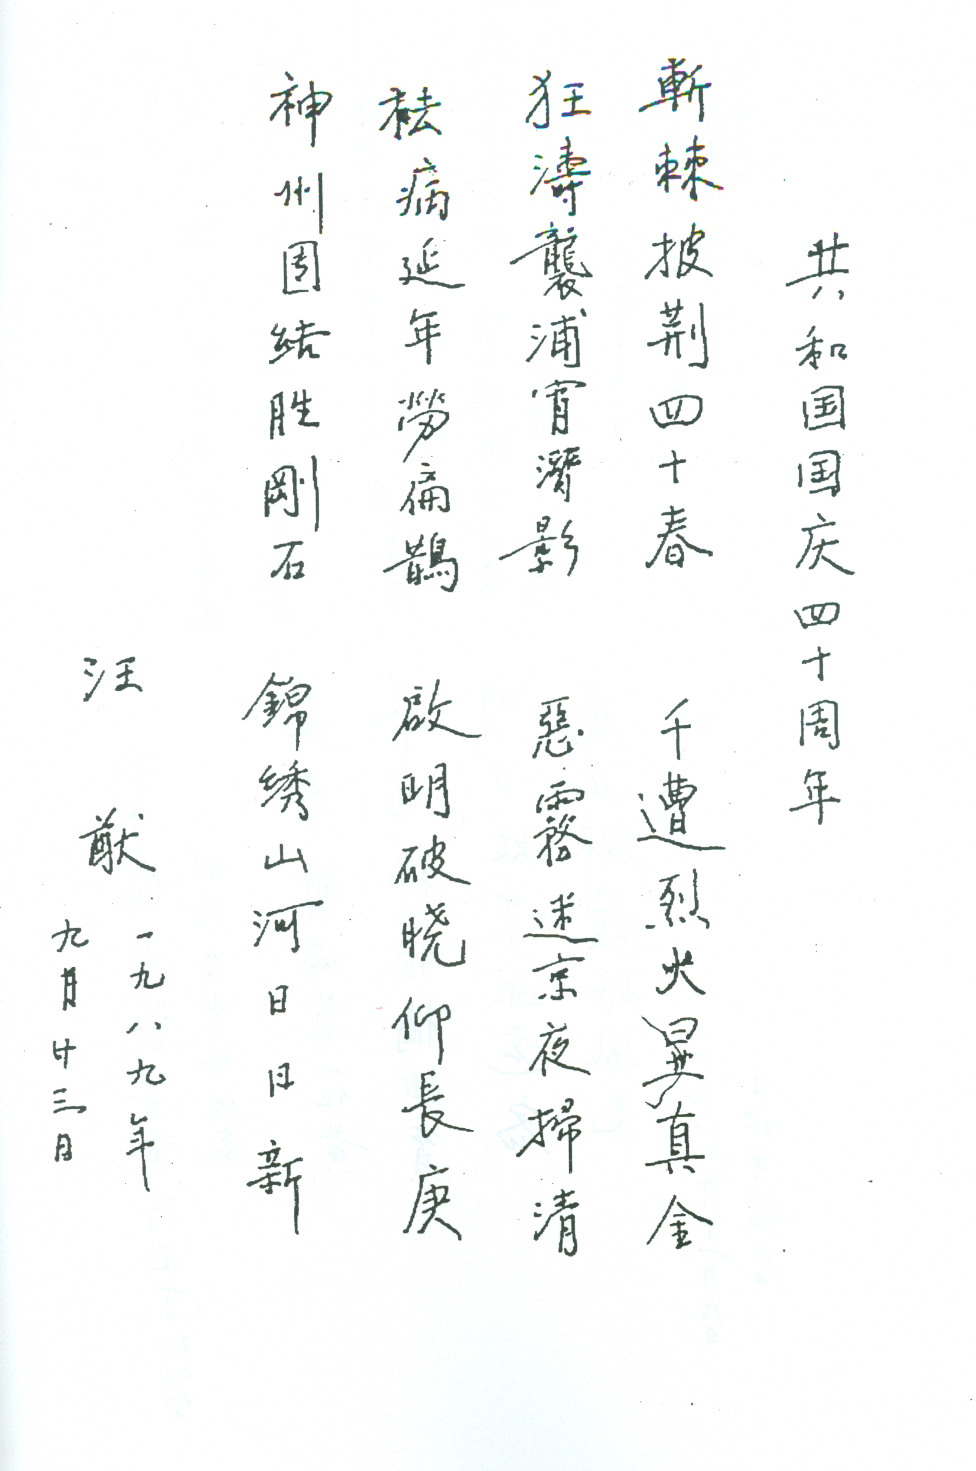 共和国国庆四十周年
斬棘披荆四十春 千遭烈火見真金
狂濤襲浦宵潛影 惡霧迷京夜掃清
祛病延年勞偏鵲 啟明破晓仰長庚
神州团结胜剛石 錦绣山河日日新
汪猷
一九八九年
九月廿三日